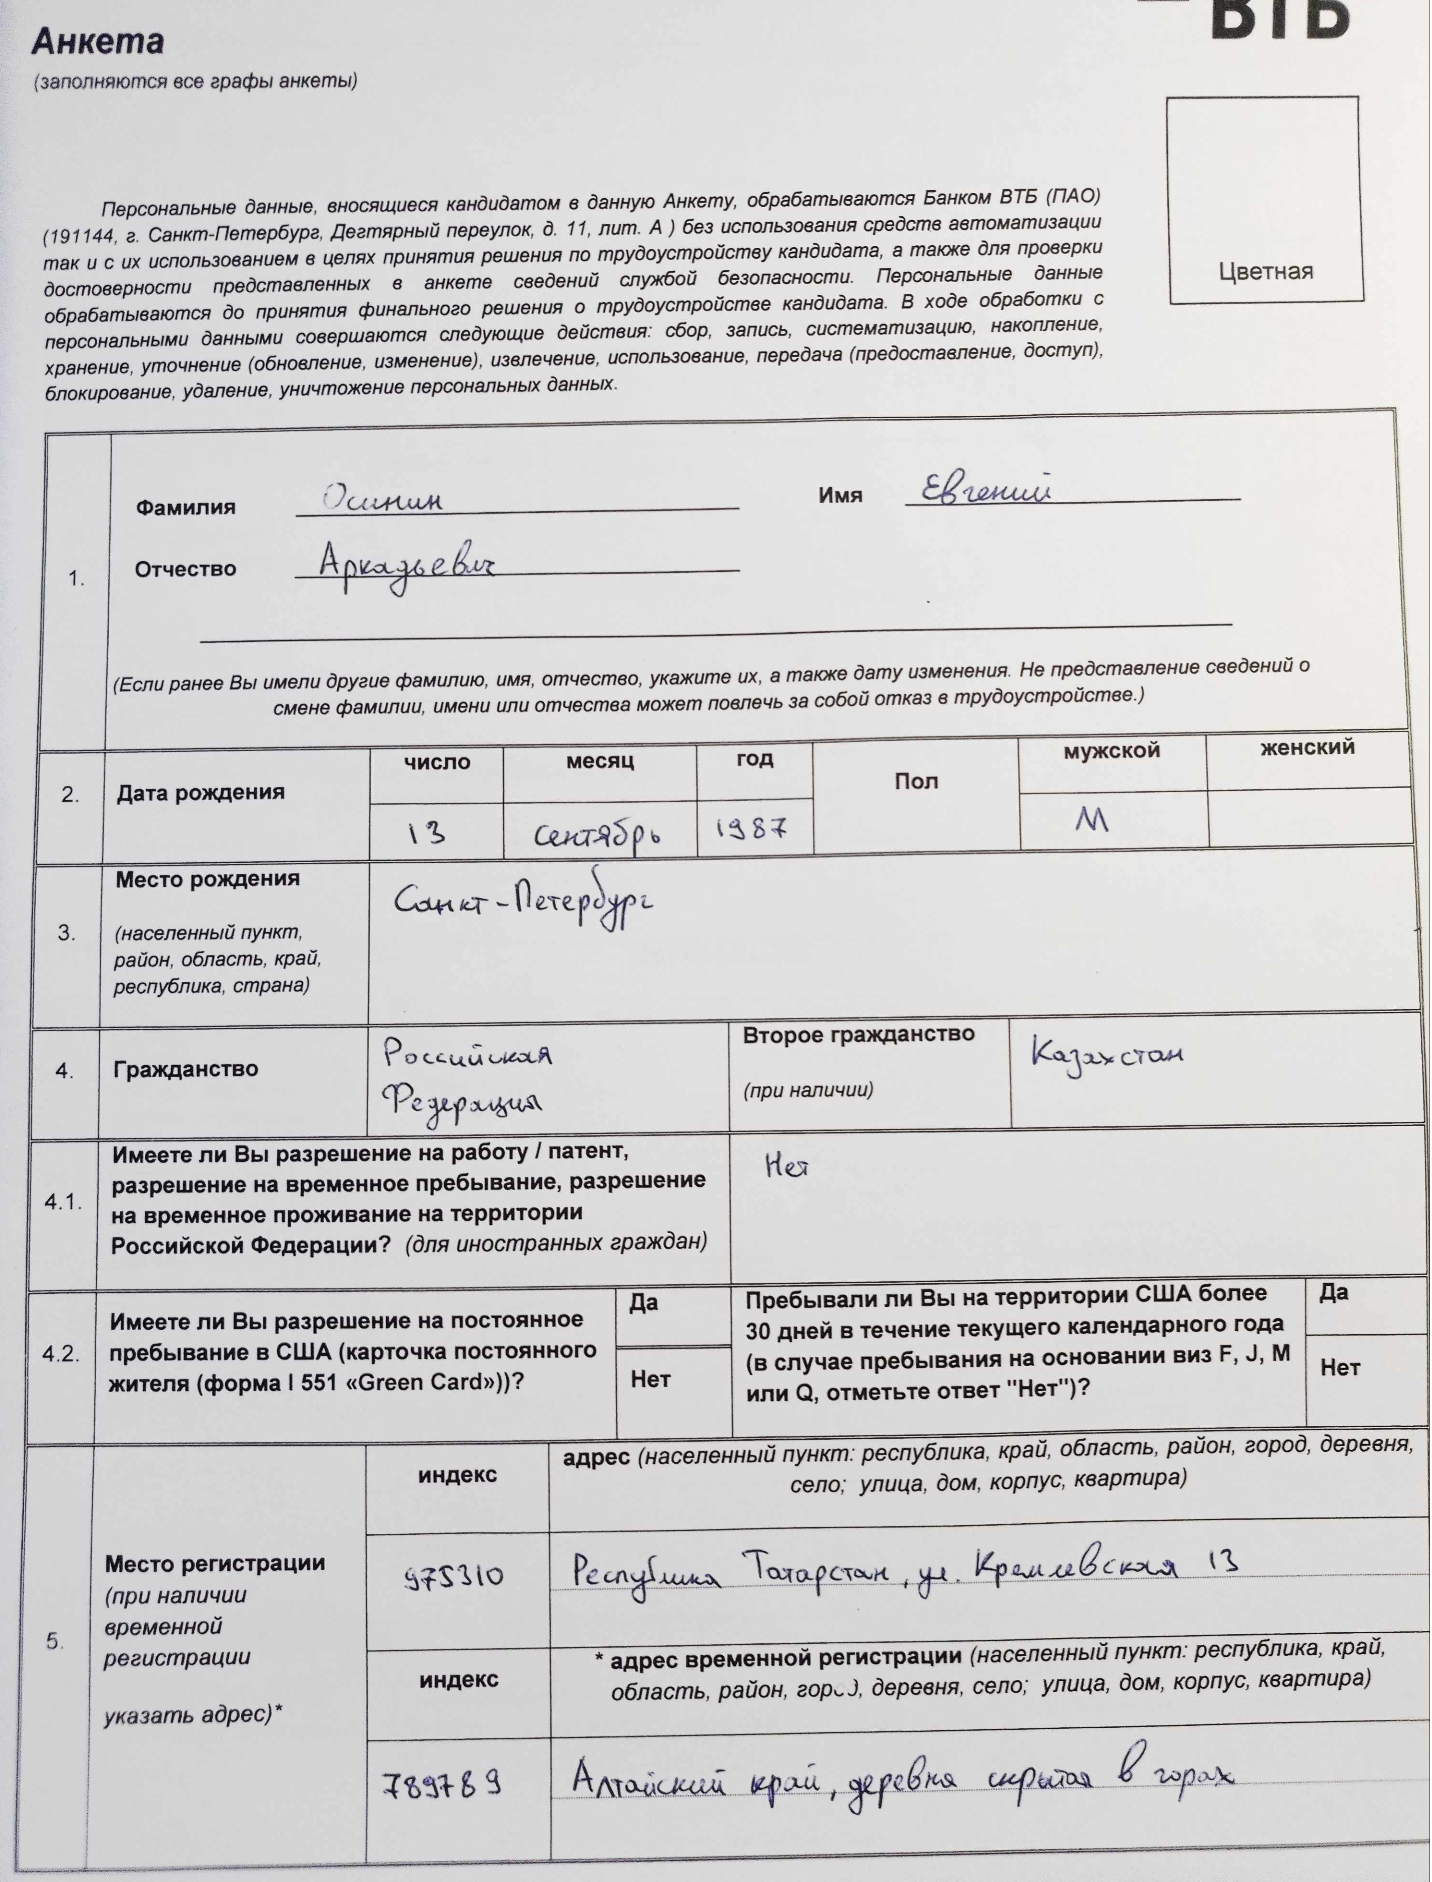 ВТБ
Анкета
(заполняются все графы анкеты)
Цветная
Персональные данные, вносящиеся кандидатом в данную Анкету, обрабатываются Банком ВТБ (ПАО)
(191144, г. Санкт-Петербург, Дегтярный переулок, д. 11, лит. А ) без использования средств автоматизации
так и с их использованием в целях принятия решения по трудоустройству кандидата, а также для проверки
достоверности представленных в анкете сведений службой безопасности. Персональные данные
обрабатываются до принятия финального решения о трудоустройстве кандидата. В ходе обработки с
персональными данными совершаются следующие действия: сбор, запись, систематизацию, накопление,
хранение, уточнение (обновление, изменение), извлечение, использование, передача (предоставление, доступ),
блокирование, удаление, уничтожение персональных данных.
1.
Фамилия Осинин Имя Евгений
Отчество Аркадьевич
(Если ранее Вы имели другие фамилию, имя, отчество, укажите их, а также дату изменения. Не представление сведений о
смене фамилии, имени или отчества может повлечь за собой отказ в трудоустройстве.)
2. Дата рождения
число месяц год Пол мужской женский
13 сентябрь 1987 М
3. Место рождения
(населенный пункт,
район, область, край,
республика, страна)
Санкт-Петербург
4. Гражданство
Российская
Федерация
Второе гражданство
(при наличии)
Казахстан
4.1.
Имеете ли Вы разрешение на работу / патент,
разрешение на временное пребывание, разрешение
на временное проживание на территории
Российской Федерации? (для иностранных граждан)
Нет
4.2.
Имеете ли Вы разрешение на постоянное
пребывание в США (карточка постоянного
жителя (форма I 551 «Green Card»))?
Да
Нет
Пребывали ли Вы на территории США более
30 дней в течение текущего календарного года
(в случае пребывания на основании виз F, J, M
или Q, отметьте ответ "Нет")?
Да
Нет
5.
Место регистрации
(при наличии
временной
регистрации
указать адрес)*
индекс
адрес (населенный пункт: республика, край, область, район, город, деревня,
село; улица, дом, корпус, квартира)
975310 Республика Татарстан, ул. Кремлевская 13
индекс
* адрес временной регистрации (населенный пункт: республика, край,
область, район, город, деревня, село; улица, дом, корпус, квартира)
789789 Алтайский край, деревня скрытая в горах